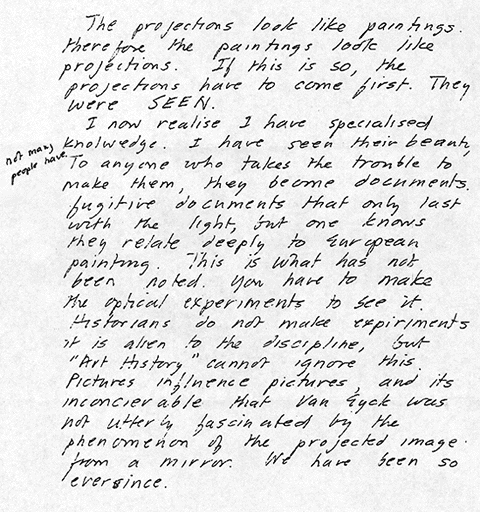 The projections look like paintings.
therefore the paintings look like
projections. If this is so, the
projections have to come first. They
were SEEN.
I now realise I have specialised
knolwedge. I have seen their beauty
not many
people have.
To anyone who takes the trouble to
make them, they become documents.
fugitive documents that only last
with the light, but one knows
they relate deeply to European
painting. This is what has not
been noted. You have to make
the optical experiments to see it.
Historians do not make expiriments
it is alien to the discipline, but
"Art History" cannot ignore this.
Pictures influence pictures, and its
inconcievable that Van Eyck was
not utterly fascinated by the
phenomenon of the projected image
from a mirror. We have been so
eversince.